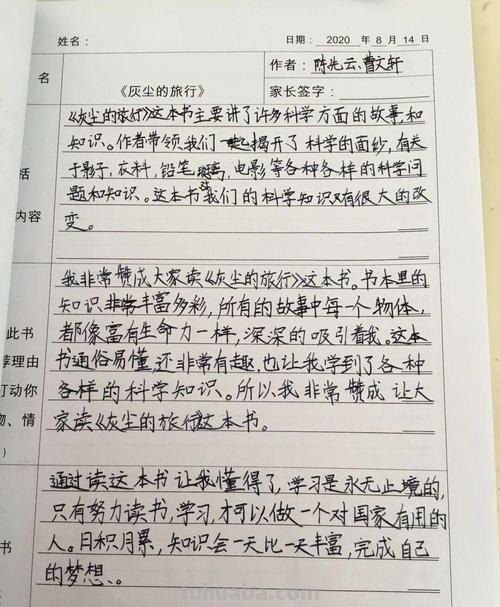 姓名： 日期： 2020 年 8 月 14 日
名 《灰尘的旅行》 作者：陈兆云、曹文轩
家长签字：
《灰尘的旅行》这本书主要讲了许多科学方面的故事,和
知识。作者带领我们一起揭开了科学的面纱，有关
括 于影子，衣料，铅笔，玻璃，电影等各种各样的科学问
题和知识。这本书我们的科学知识又有很大的改
内容
变。
我非常赞成大家读《灰尘的旅行》这本书。书本里的
知识非常丰富多彩，所有的故事中每一个物体，
此书 都像富有生命力一样，深深的吸引着我。这本
荐理由 书通俗易懂，还非常有趣，也让我学到了各种
打动你 各样的科学知识。所以我非常赞成让大
物、情 家读《灰尘的旅行》这本书。
）
通过读这本书让我懂得了，学习是永无止境的，
只有努力读书，学习，才可以做一个对国家有用的
书 人。日积月累，知识会一天比一天丰富，完成自己
的梦想、。
tuhuaba.com